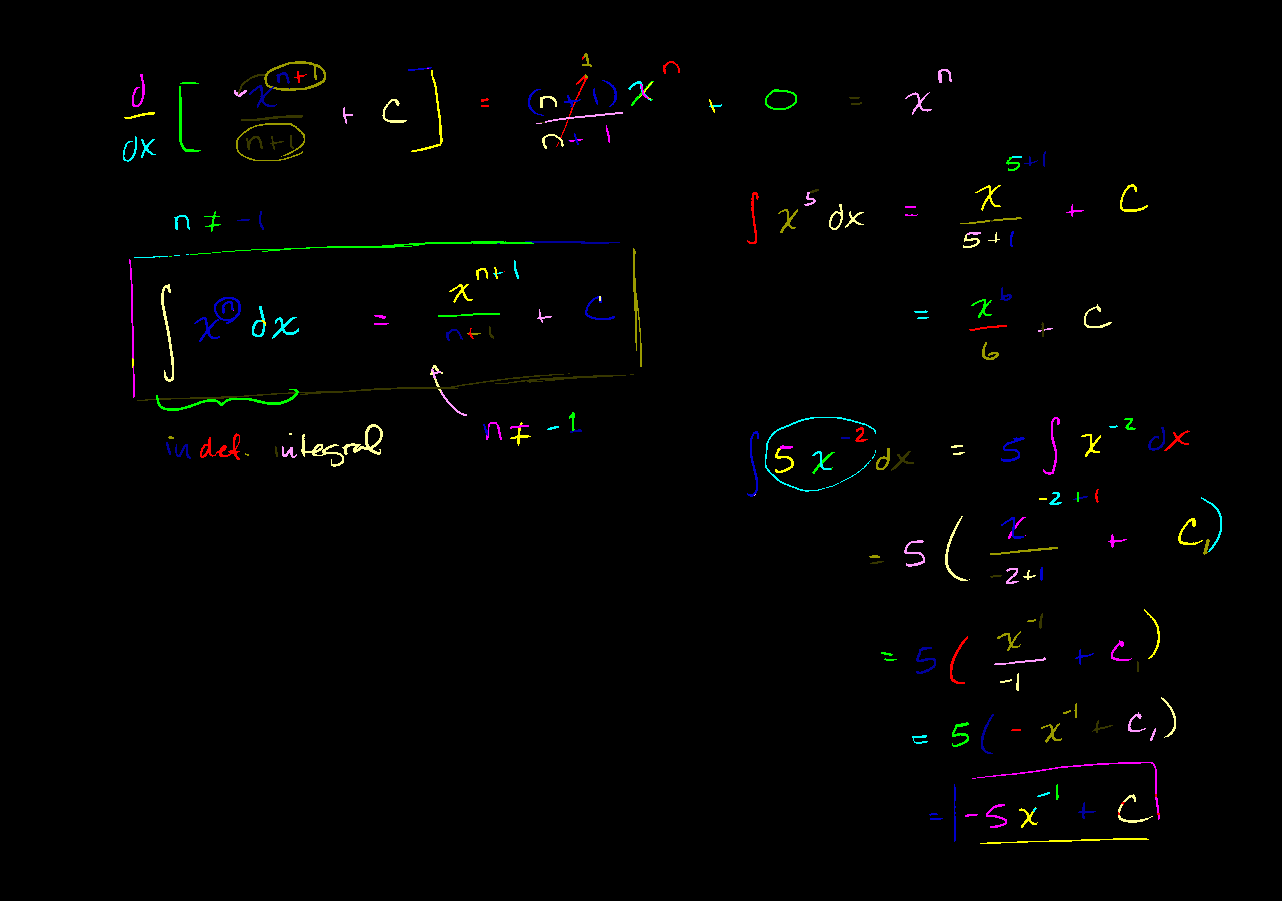 d/dx [ x^(n+1)/(n+1) + C ] = (n+1)x^n/(n+1) + 0 = x^n
1
n ≠ -1
∫ x^n dx = x^(n+1)/(n+1) + C
n ≠ -1
indef. integral
∫ x^5 dx = x^(5+1)/(5+1) + C
= x^6/6 + C
∫ 5x^-2 dx = 5 ∫ x^-2 dx
= 5 ( x^(-2+1)/(-2+1) + C₁ )
= 5 ( x^-1/-1 + C₁ )
= 5 ( - x^-1 + C₁ )
= -5x^-1 + C